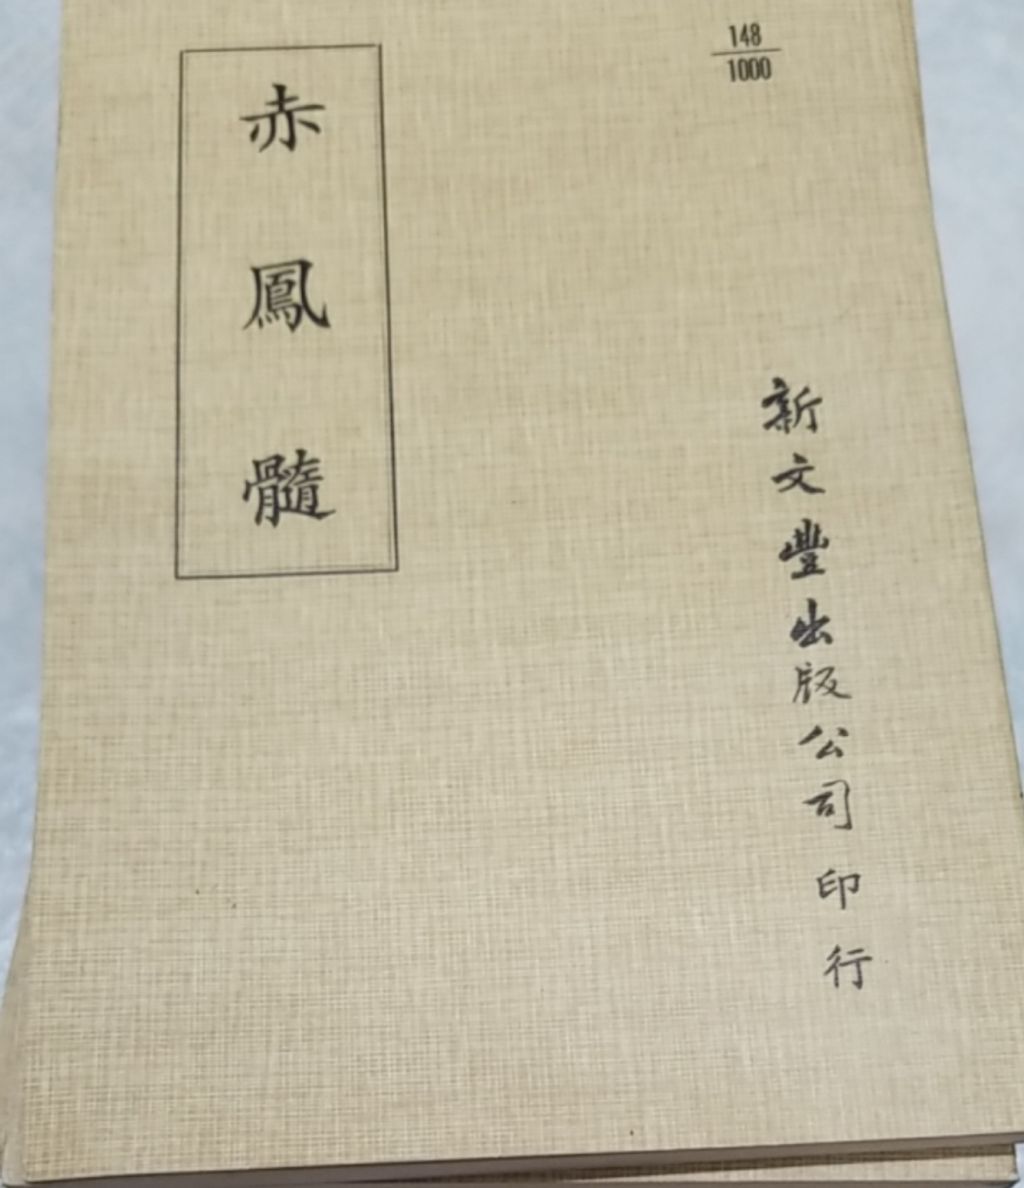 148
1000
新文豐出版公司印行
赤鳳髓